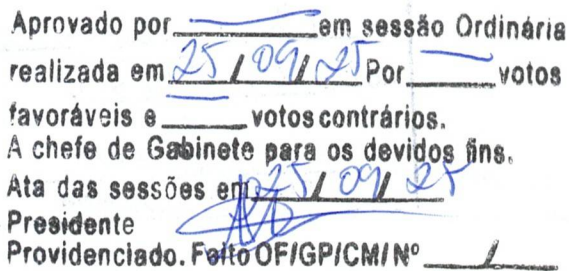 Aprovado por ______ em sessão Ordinária
realizada em 25/09/25 Por ____ votos
favoráveis e ____ votos contrários.
A chefe de Gabinete para os devidos fins.
Ata das sessões em 25/09/25
Presidente
Providenciado. Feito OF/GP/CM/Nº ____/